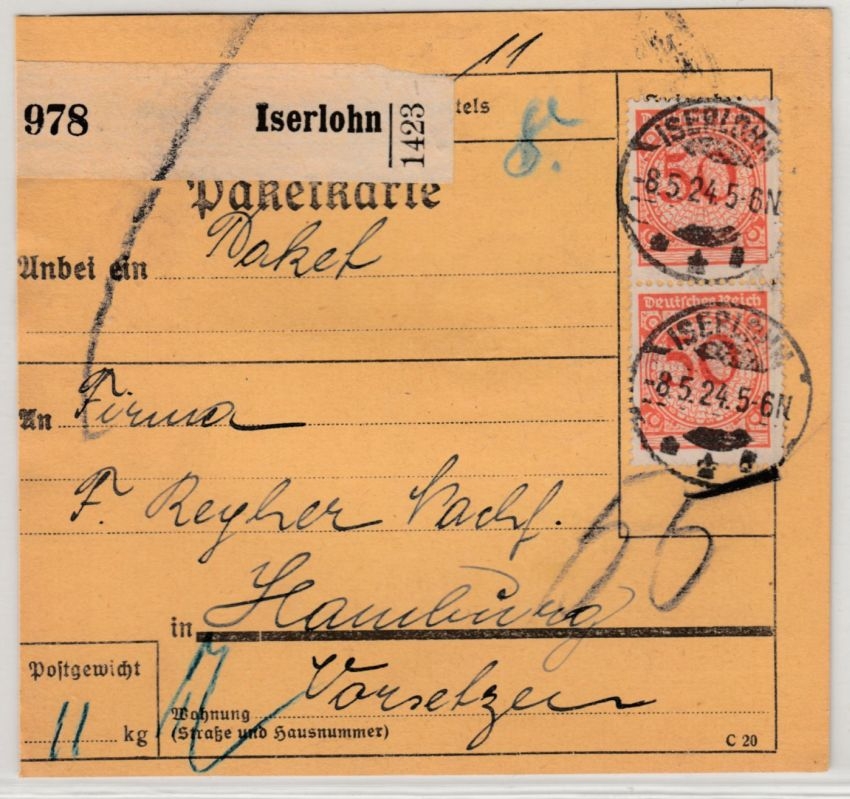 11
978 Iserlohn 1423
8
Paketkarte
Anbei ein Paket
50
ISERLOHN
-8.5.24.5-6N.
Deutsches Reich
50
ISERLOHN
-8.5.24.5-6N.
An Firma
F. Reyher Nachf.
65
in Hamburg
Postgewicht
11 kg
Vorsetzen
Wohnung
(Straße und Hausnummer)
C 20